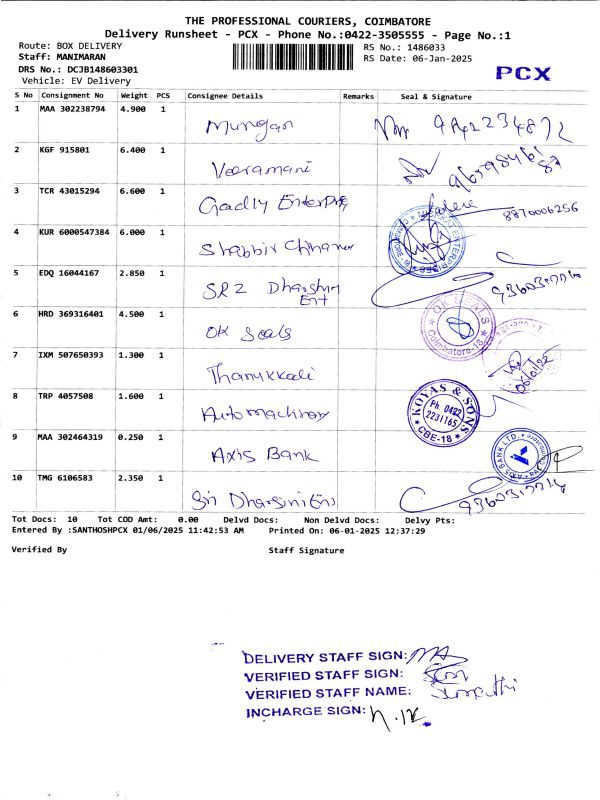 THE PROFESSIONAL COURIERS, COIMBATORE
Delivery Runsheet - PCX - Phone No.:0422-3505555 - Page No.:1
Route: BOX DELIVERY
RS No.: 1486033
Staff: MANIMARAN
RS Date: 06-Jan-2025
DRS No.: DCJB148603301
PCX
Vehicle: EV Delivery
S No Consignment No Weight PCS Consignee Details Remarks Seal & Signature
1 MAA 302238794 4.900 1 Murugan 9442234872
2 KGF 915801 6.400 1 Veeramani
3 TCR 43015294 6.600 1 8870006256
4 KUR 6000547384 6.000 1 Shabbir
5 EDQ 16044167 2.850 1
6 HRD 369316401 4.500 1 OK Seals OK SEALS Coimbatore-18
7 IXM 507650393 1.300 1
8 TRP 4057508 1.600 1 KOYAS & SONS Ph 0422 2231165 CBE-18
9 MAA 302464319 0.250 1 Axis Bank
10 TMG 6106583 2.350 1
Tot Docs: 10 Tot COD Amt: 0.00 Delvd Docs: Non Delvd Docs: Delvy Pts:
Entered By :SANTHOSHPCX 01/06/2025 11:42:53 AM Printed On: 06-01-2025 12:37:29
Verified By Staff Signature
DELIVERY STAFF SIGN:
VERIFIED STAFF SIGN:
VERIFIED STAFF NAME:
INCHARGE SIGN: